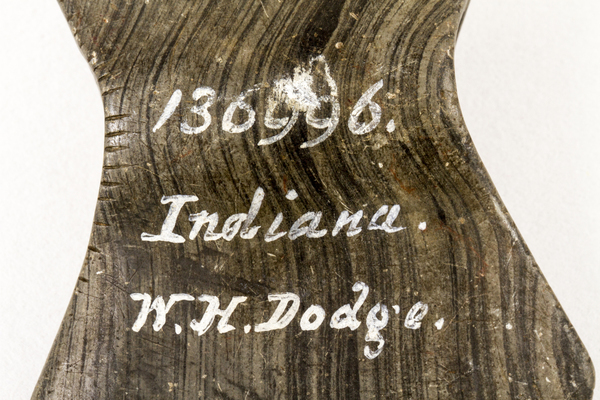 136996.
Indiana.
W.H. Dodge.